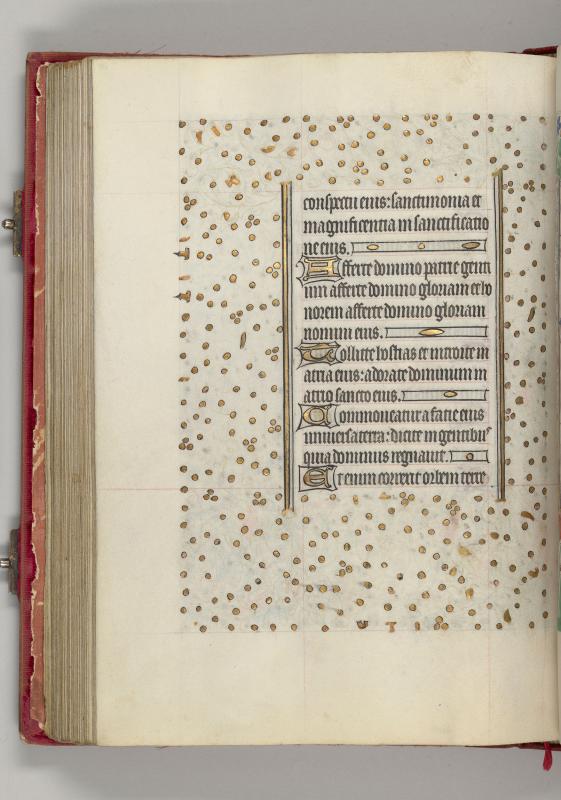 conspectu eius: sanctimonia et
magnificentia in sanctificatio
ne eius.
Afferte domino patrie genti
um afferte domino gloriam et ho
norem afferte domino gloriam
nomini eius.
Tollite hostias et introite in
atria eius: adorate dominum in
atrio sancto eius.
Commoueatur a facie eius
uniuersa terra: dicite in gentibus
quia dominus regnauit.
Etenim correxit orbem terre